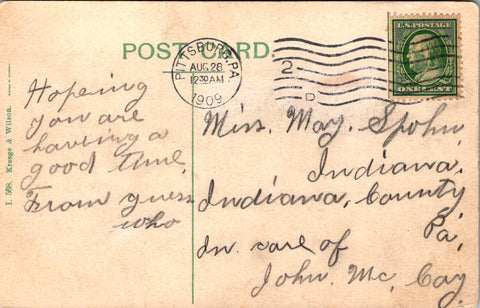 POST CARD.
PITTSBURG, PA.
AUG 28
12 30 AM
1909
2
D
U.S. POSTAGE
ONE CENT
I. 568. Kresge & Wilson.
Hoping
you are
having a
good time.
From guess
who
Miss. May. Spohn
Indiana.
Indiana, County
Pa,
In care of
John. Mc, Coy